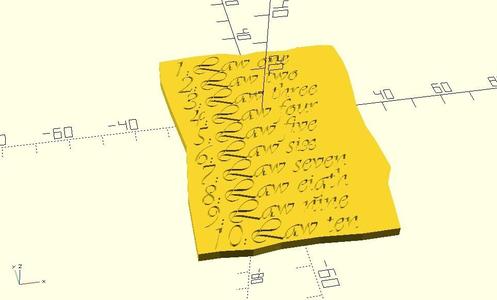 1: Law one
2: Law two
3: Law three
4: Law four
5: Law five
6: Law six
7: Law seven
8: Law eigth
9: Law nine
10: Law ten
-60
-40
40
60